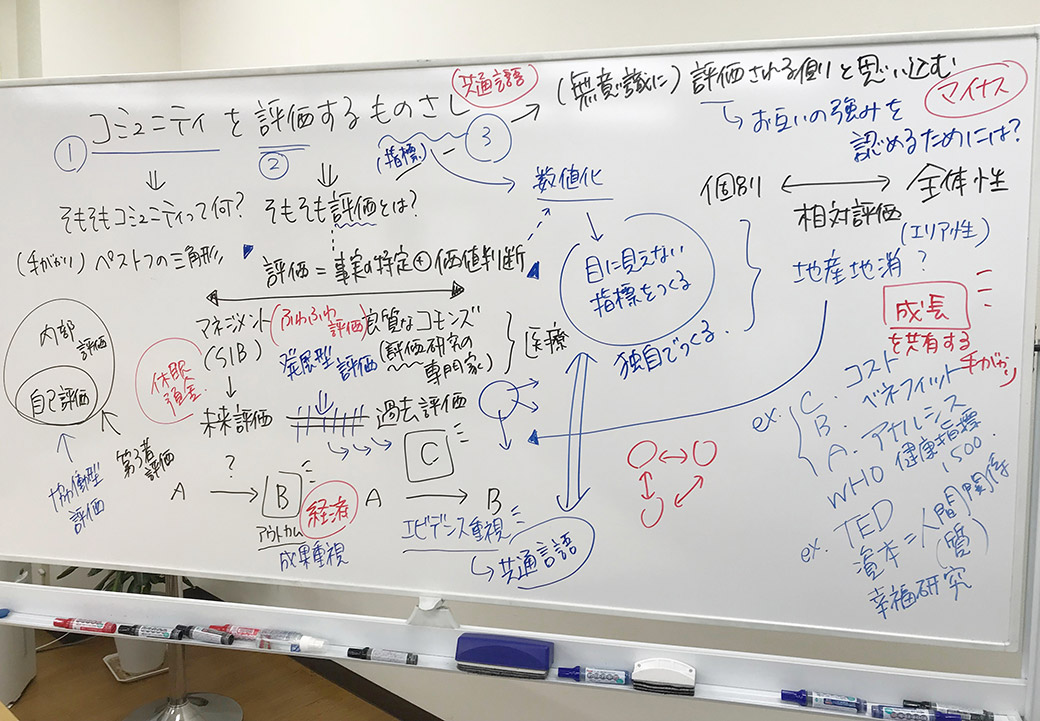 コミュニティを評価するものさし
共通言語
→ (無意識に)評価される側と思い込む
マイナス
お互いの強みを
認めるためには?
①
②
(指標)
③
そもそもコミュニティって何?
そもそも評価とは?
数値化
個別 ↔ 全体性
相対評価
(エリア性)
地産地消?
(手がかり)ペストフの三角形
評価=事実の特定⊕価値判断
目に見えない
指標をつくる
独自でつくる
成長
を共有する
手がかり
マネジメント
(SIB)
(ふわふわ評価)
発展型評価
良質なコモンズ
(評価研究の
専門家)
医療
内部評価
自己評価
休眠
預金
未来評価
過去評価
C
協働型
評価
第3者
評価
A →? B
アウトカム
成果重視
経済
A → B
エビデンス重視
共通言語
ex.
C. コスト
B. ベネフィット
A. アナルシス
WHO 健康指標
1500.
ex. TED
資本=人間関係
(質)
幸福研究